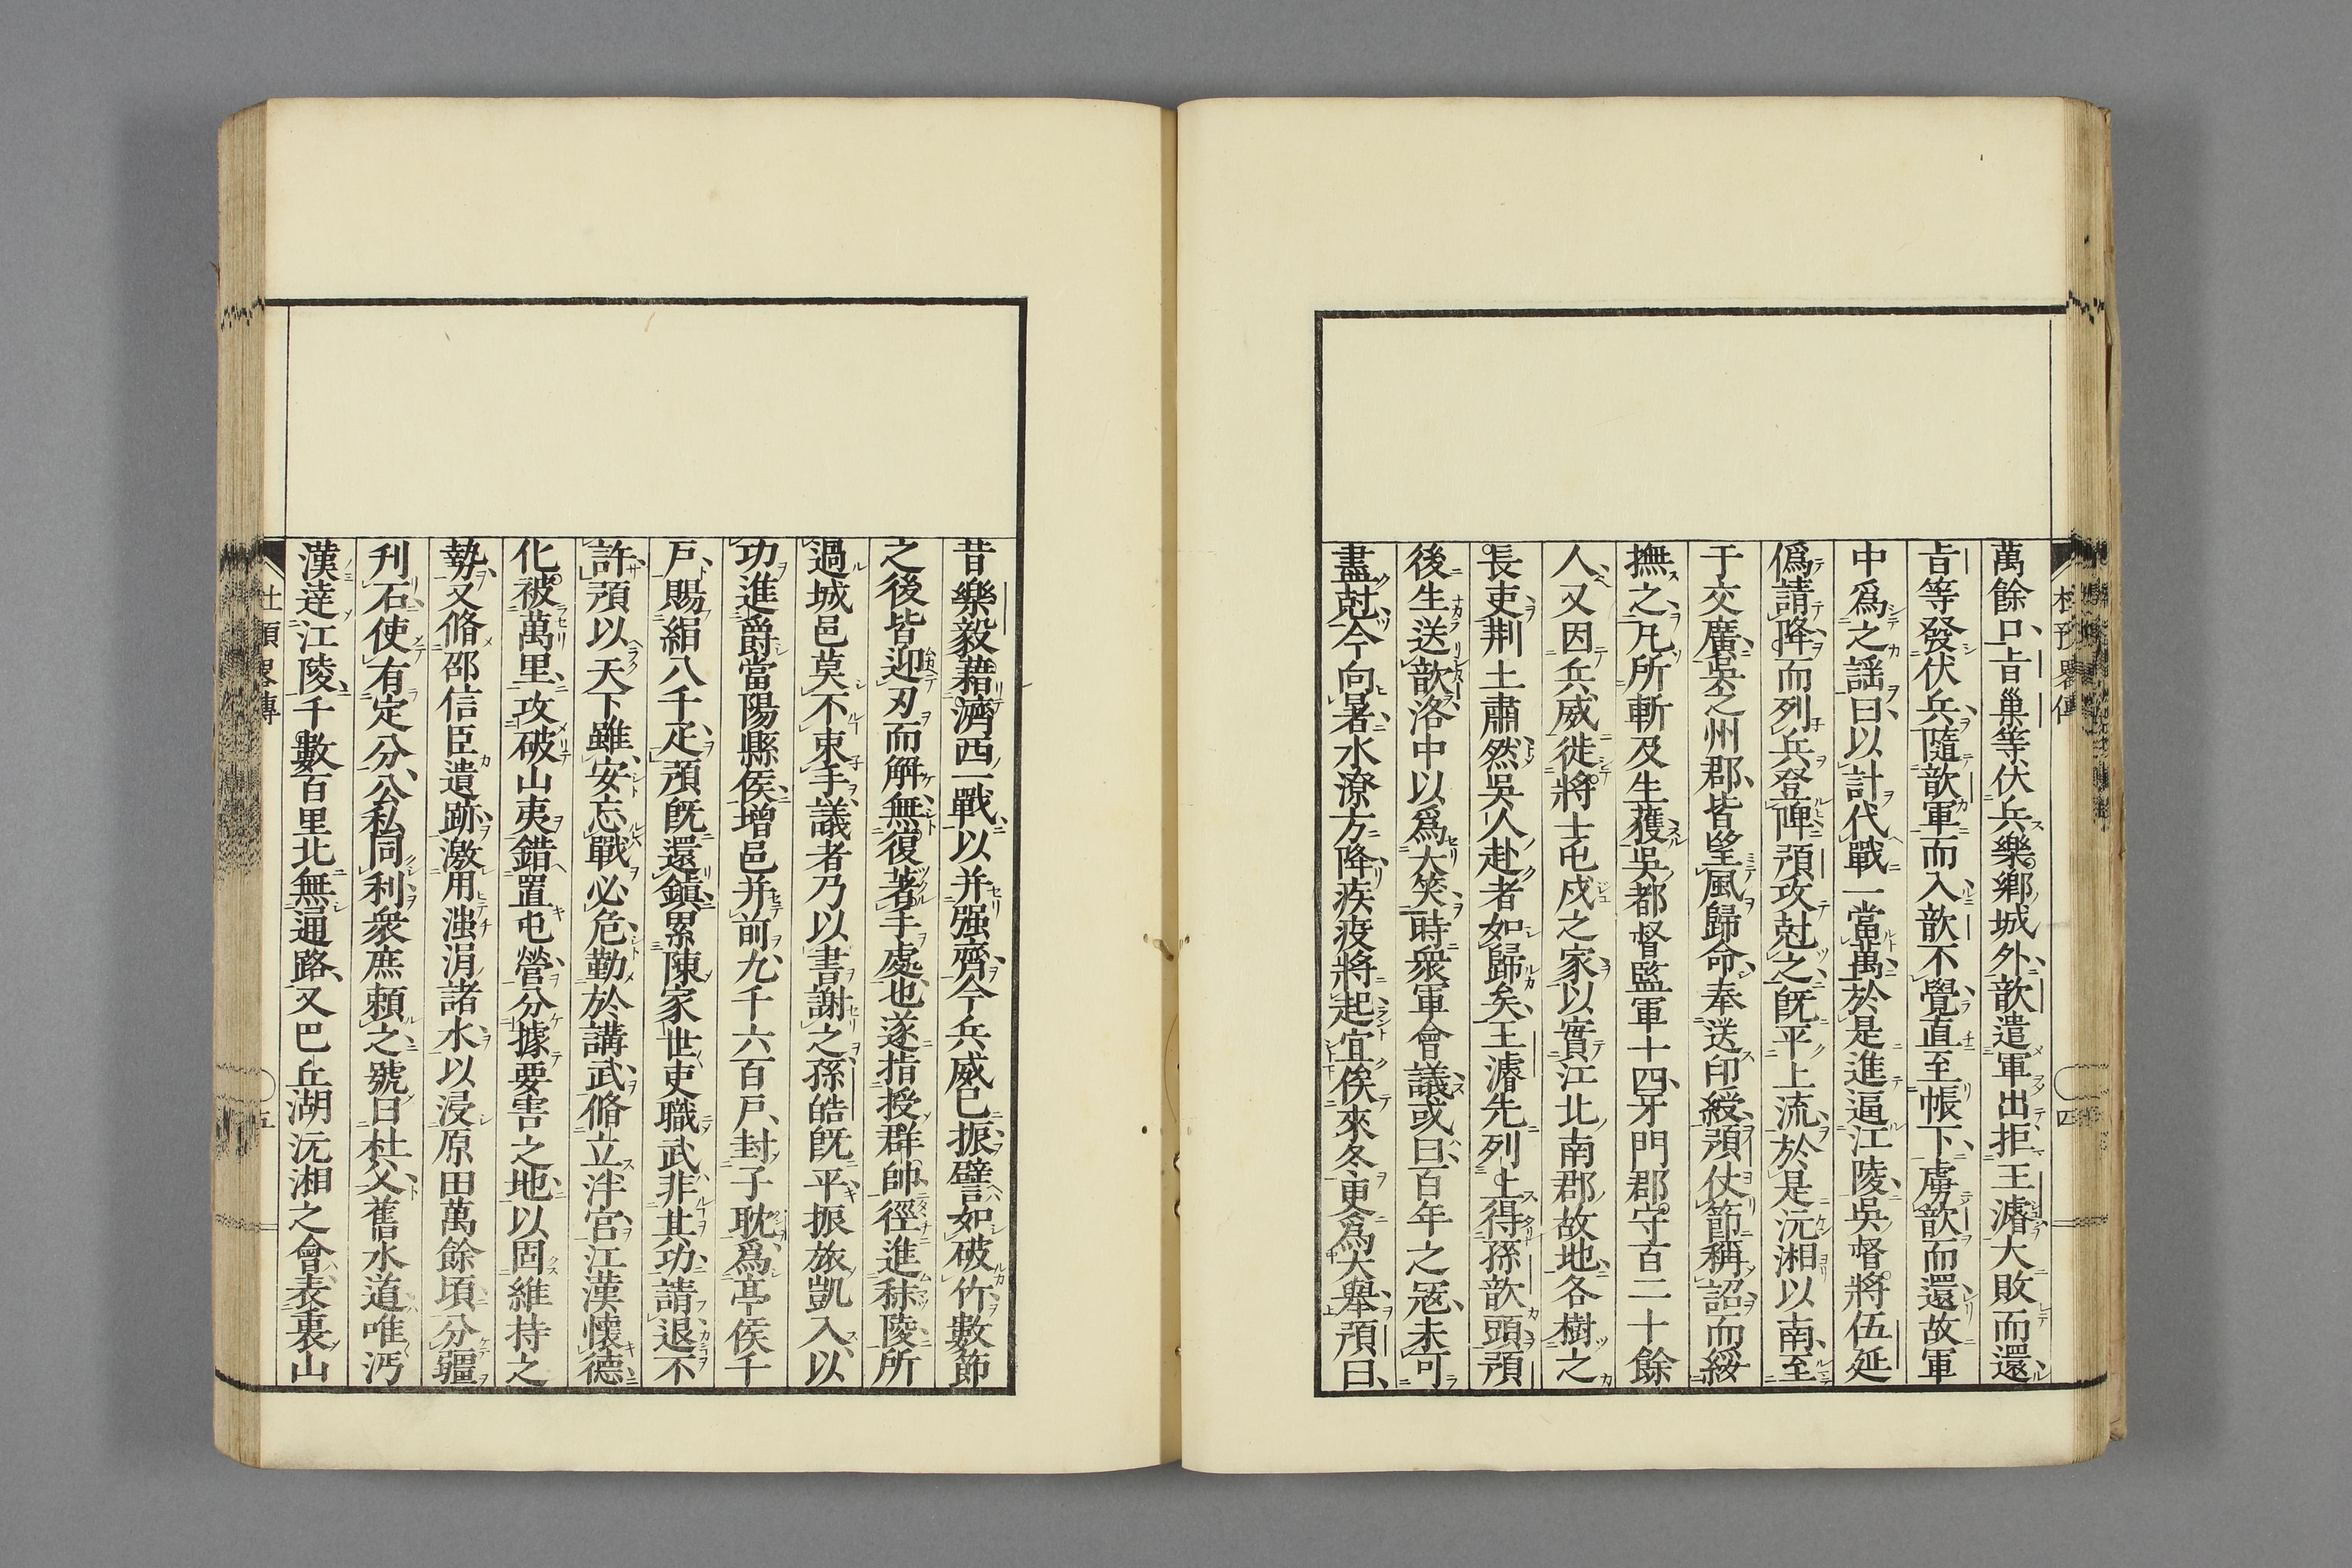 萬餘口、旨巢等伏兵樂鄉城外、歆遣軍出拒王濬、大敗而還、
旨等發伏兵、隨歆軍而入、歆不覺、直至帳下、虜歆而還、故軍
中爲之謡曰、以計代戰一當萬、於是進逼江陵、吳督將伍延
僞請降、而列兵登陴、預攻尅之、旣平上流、於是沅湘以南、至
于交廣、吳之州郡、皆望風歸命、奉送印綬、預仗節稱詔而綏
撫之、凡所斬及生獲吳都督監軍十四、牙門郡守百二十餘
人、又因兵威、徙將士屯戍之家、以實江北、南郡故地、各樹之
長吏、荆土肅然、吳人赴者如歸矣、王濬先列上得孫歆頭、預
後生送歆、洛中以爲大笑、時衆軍會議、或曰、百年之寇、未可
盡尅、今向暑、水潦方降、疾疫將起、宜俟來冬、更爲大舉、預曰、
杜預畧傳
四
昔樂毅藉濟西一戰、以并强齊、今兵威已振、譬如破竹、數節
之後、皆迎刃而解、無復著手處也、遂指授群帥、徑進秣陵、所
過城邑、莫不束手、議者乃以書謝之、孫皓旣平、振旅凱入、以
功進爵當陽縣侯、增邑并前九千六百戶、封子耽爲亭侯、千
戶、賜絹八千疋、預旣還鎭、累陳家世吏職、武非其功、請退、不
許、預以天下雖安、忘戰必危、勤於講武、脩立泮宮、江漢懷德、
化被萬里、攻破山夷、錯置屯營、分據要害之地、以固維持之
勢、又脩邵信臣遺跡、激用滍淯諸水、以浸原田萬餘頃、分疆
刋石、使有定分、公私同利、衆庶賴之、號曰杜父、舊水道唯沔
漢達江陵、千數百里、北無通路、又巴丘湖、沅湘之會、表裏山
杜預畧傳
五